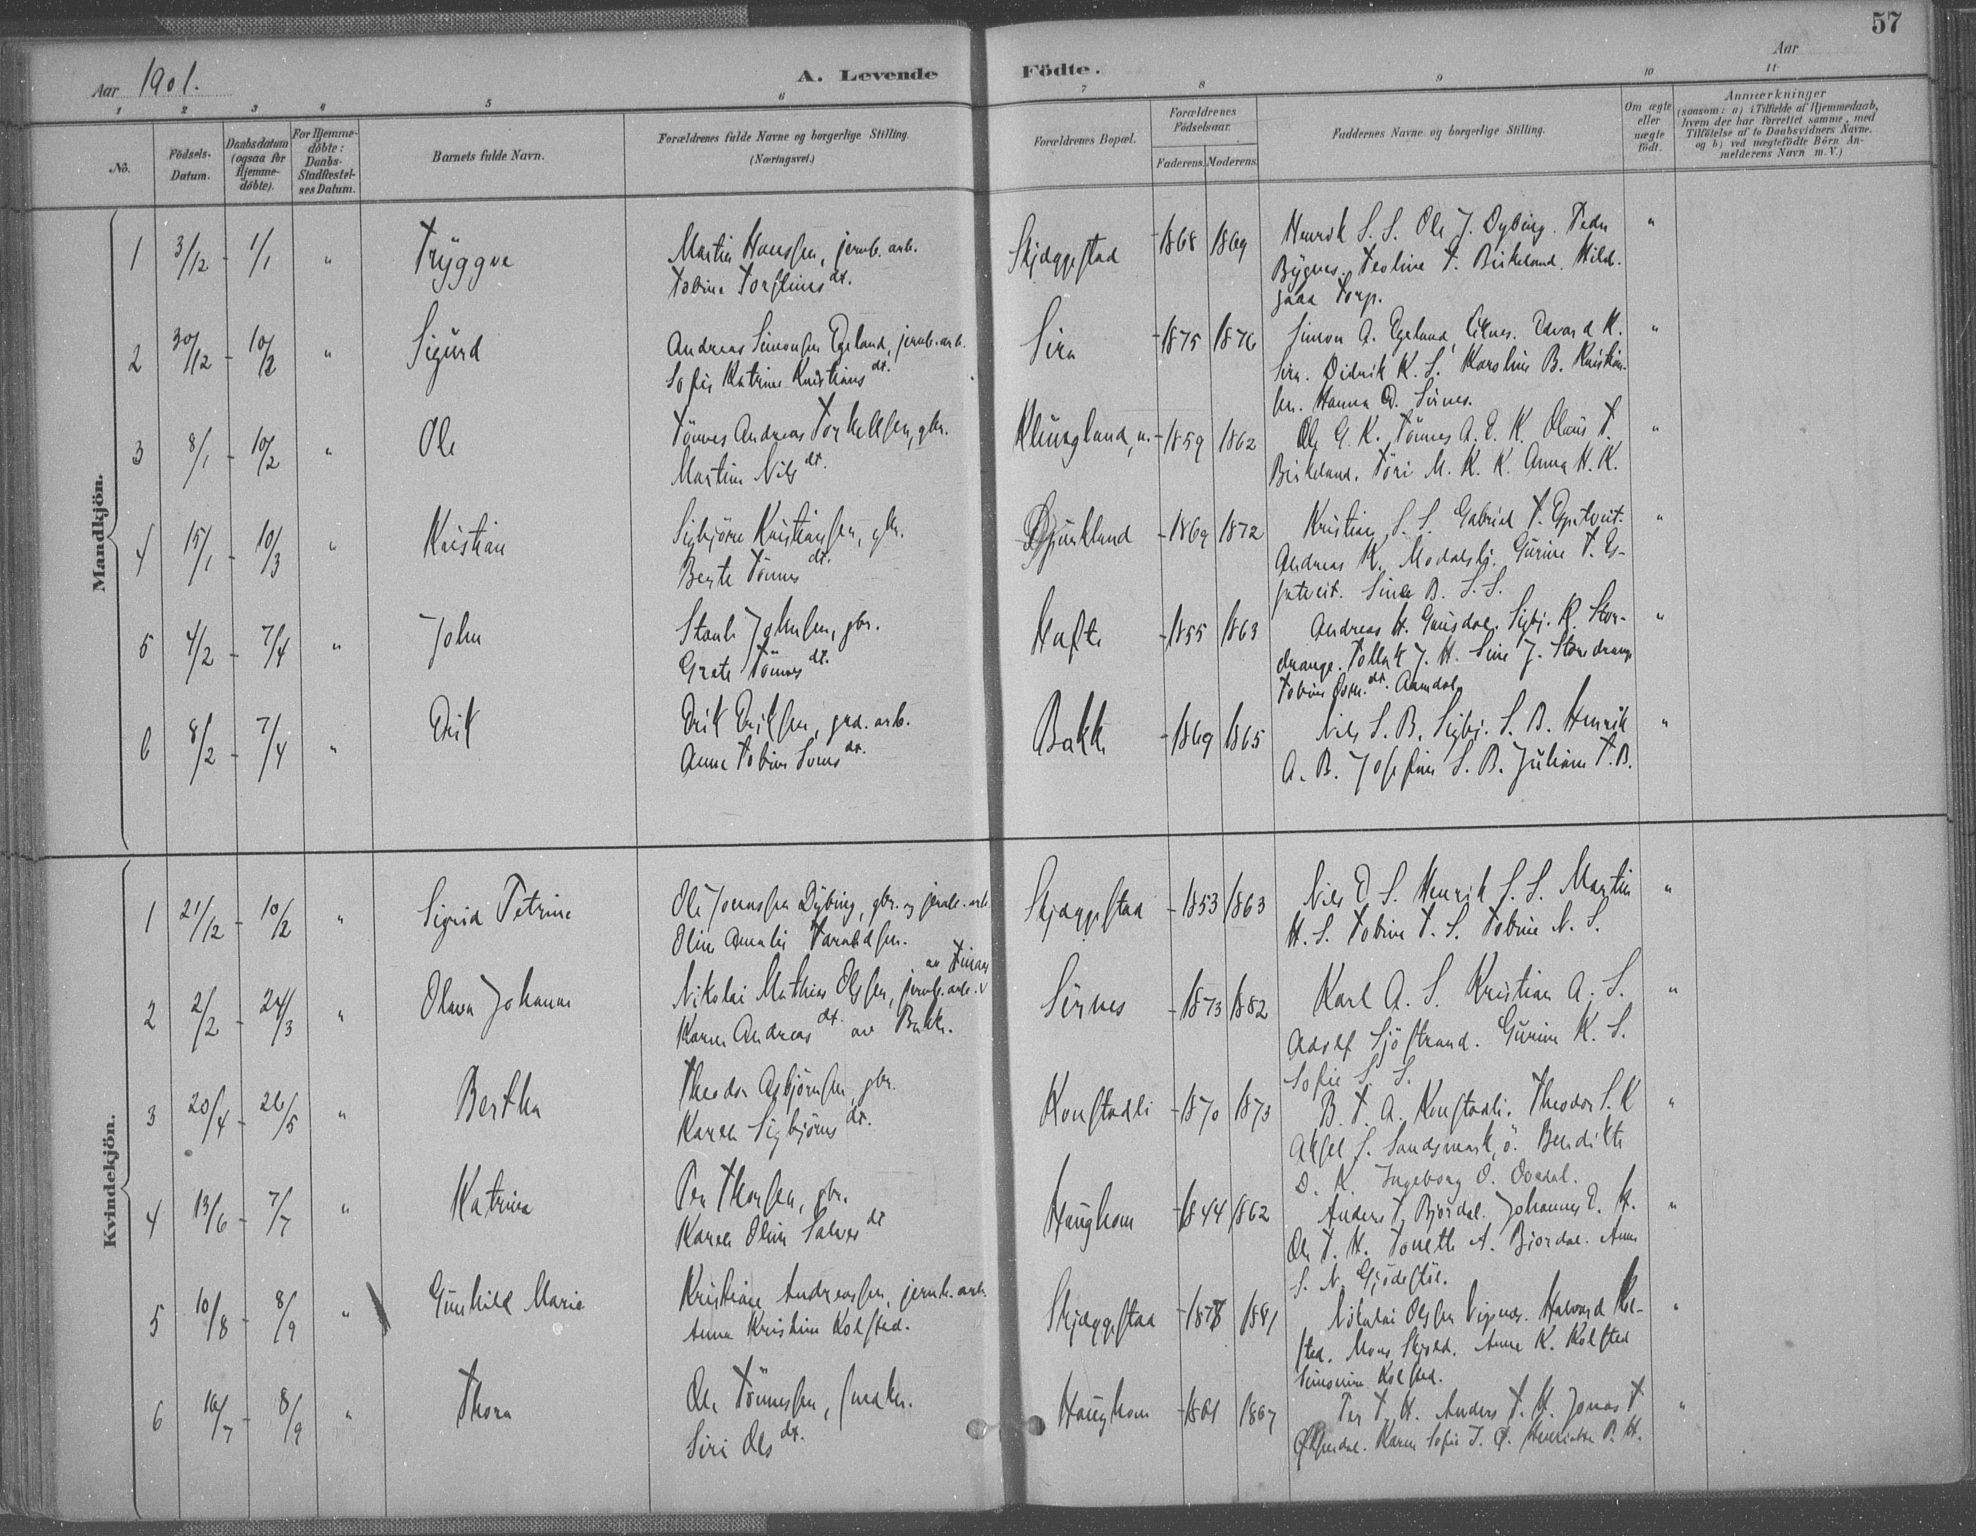 57
Aar 1901.
A. Levende Födte.
Aar
1 2 3 4 5 6 7 8 9 10 11
No.
Födsels-Datum.
Daabsdatum (ogsaa for Hjemme-döbte).
For Hjemme-döbte: Daabs-Stadfæstel-ses Datum.
Barnets fulde Navn.
Forældrenes fulde Navne og borgerlige Stilling.
(Næringsvei.)
Forældrenes Bopæl.
Forældrenes Födselsaar.
Faderens. Moderens.
Faddernes Navne og borgerlige Stilling.
Om ægte eller uægte födt.
Anmærkninger
(saasom: a) i Tilfælde af Hjemmedaab,
hvem der har forrettet samme, med
Tilföielse af to Daabsvidners Navne.
og b) ved uægtefödte Börn An-
melderens Navn m. V.)
Mandkjön.
1 3/12 - 1/1 " Tryggve
Martin Hanssen, jernb. arb.
Tobine Torflinesdt.
Skjæggestad 1868 1869
Henrik S. S. Ole J. Dybing. Peder
Bygnes. Teoline T. Birkeland. Hild.
2 30/12 - 10/2 " Sigurd
Andreas Simonsen Egeland, jernb. arb.
Sofie Katrine Kristiansdt.
Sira 1875 1876
Simon A. Egeland, Edvard K.
Sira. Didrik K. S. Karoline B. Kristian-
sen. Hanna O. Sirnes.
3 8/1 - 10/2 " Ole
Tönnes Andreas Torkellsen, gbr.
Martine Nilsdt.
Klungland, n. 1859 1862
Ole G. K. Tönnes A. E. K. Olaus T.
Birkeland. Töri M. K. K. Anna H. K.
4 15/1 - 10/3 " Kristian
Sigbjörn Kristiansen, gbr.
Berte Tönnesdt.
1869 1872
Kristian S. S. Gabriel T.
Andreas K. Modalsli. Gurine T. Es-
Sine B. S. S.
5 4/2 - 7/4 " John
Stank Johnsen, gbr.
Grete Tönnesdt.
Hafte 1855 1863
Andreas H. Gausdal. Sigbj. R. Stor-
drange. Tollak J. H. Sine J. Storedrange
6 8/2 - 7/4 " Erik
Erik Eriksen, grd. arb.
Anne Tobine Sörensdt.
Bakke 1869 1865
Nils S. B. Sigbj. S. B. Henrik
A. B. Josefine S. B. Juliane T. B.
Kvindekjön.
1 21/12 - 10/2 " Sigrid Petrine
Ole Jonassen Dybing, gbr. og jernb. arb.
Oline Amalie Taraldsen.
Skjæggestad 1853 1863
Nils E. S. Henrik S. S. Martin
H. S. Tobine T. S. Tobine N. S.
2 2/2 - 24/3 " Olava Johanne
Nikolai Mathias Olsen, jernb. arb.
Karen Andreasdt. av Bakke.
Sirnes 1873 1882
Karl A. S. Kristian A. S.
Adolf Sjöstrand. Gurine K. S.
Sofie S. S.
3 20/4 - 26/5 " Bertha
Theodor Asbjörnsen, gbr.
Karen Sigbjörnsdt.
Konstadli 1870 1873
B. T. A. Konstadli. Theodor S. K
Aksel S. Sandsmark, ö. Bendikte
D. K. Ingeborg O.
4 13/6 - 7/7 " Katrine
Per Thorsen, gbr.
Karen Oline Salvesdt
Haughom 1844 1862
Anders T. Bjordal. Johannes E. H.
Ole T. H. Tonette A. Bjordal. Anne
S. N. Gjödestöl.
5 10/8 - 8/9 " Gunhild Marie
Kristian Andreassen, jernb. arb.
Anna Kristine Kolsted.
Skjæggestad 1878 1881
Nikolai Olsen Vigenes. Halvard Kol-
sted. Mons Skjold. Anne K. Kolsted
Simonine Kolsted.
6 16/7 - 8/9 " Thora
Ole Tönnessen, snedker.
Siri Olsdt.
Haughom 1861 1867
Per T. H. Anders T. H. Jonas T
Karen Sofie T. Ö. Henriette P. H.